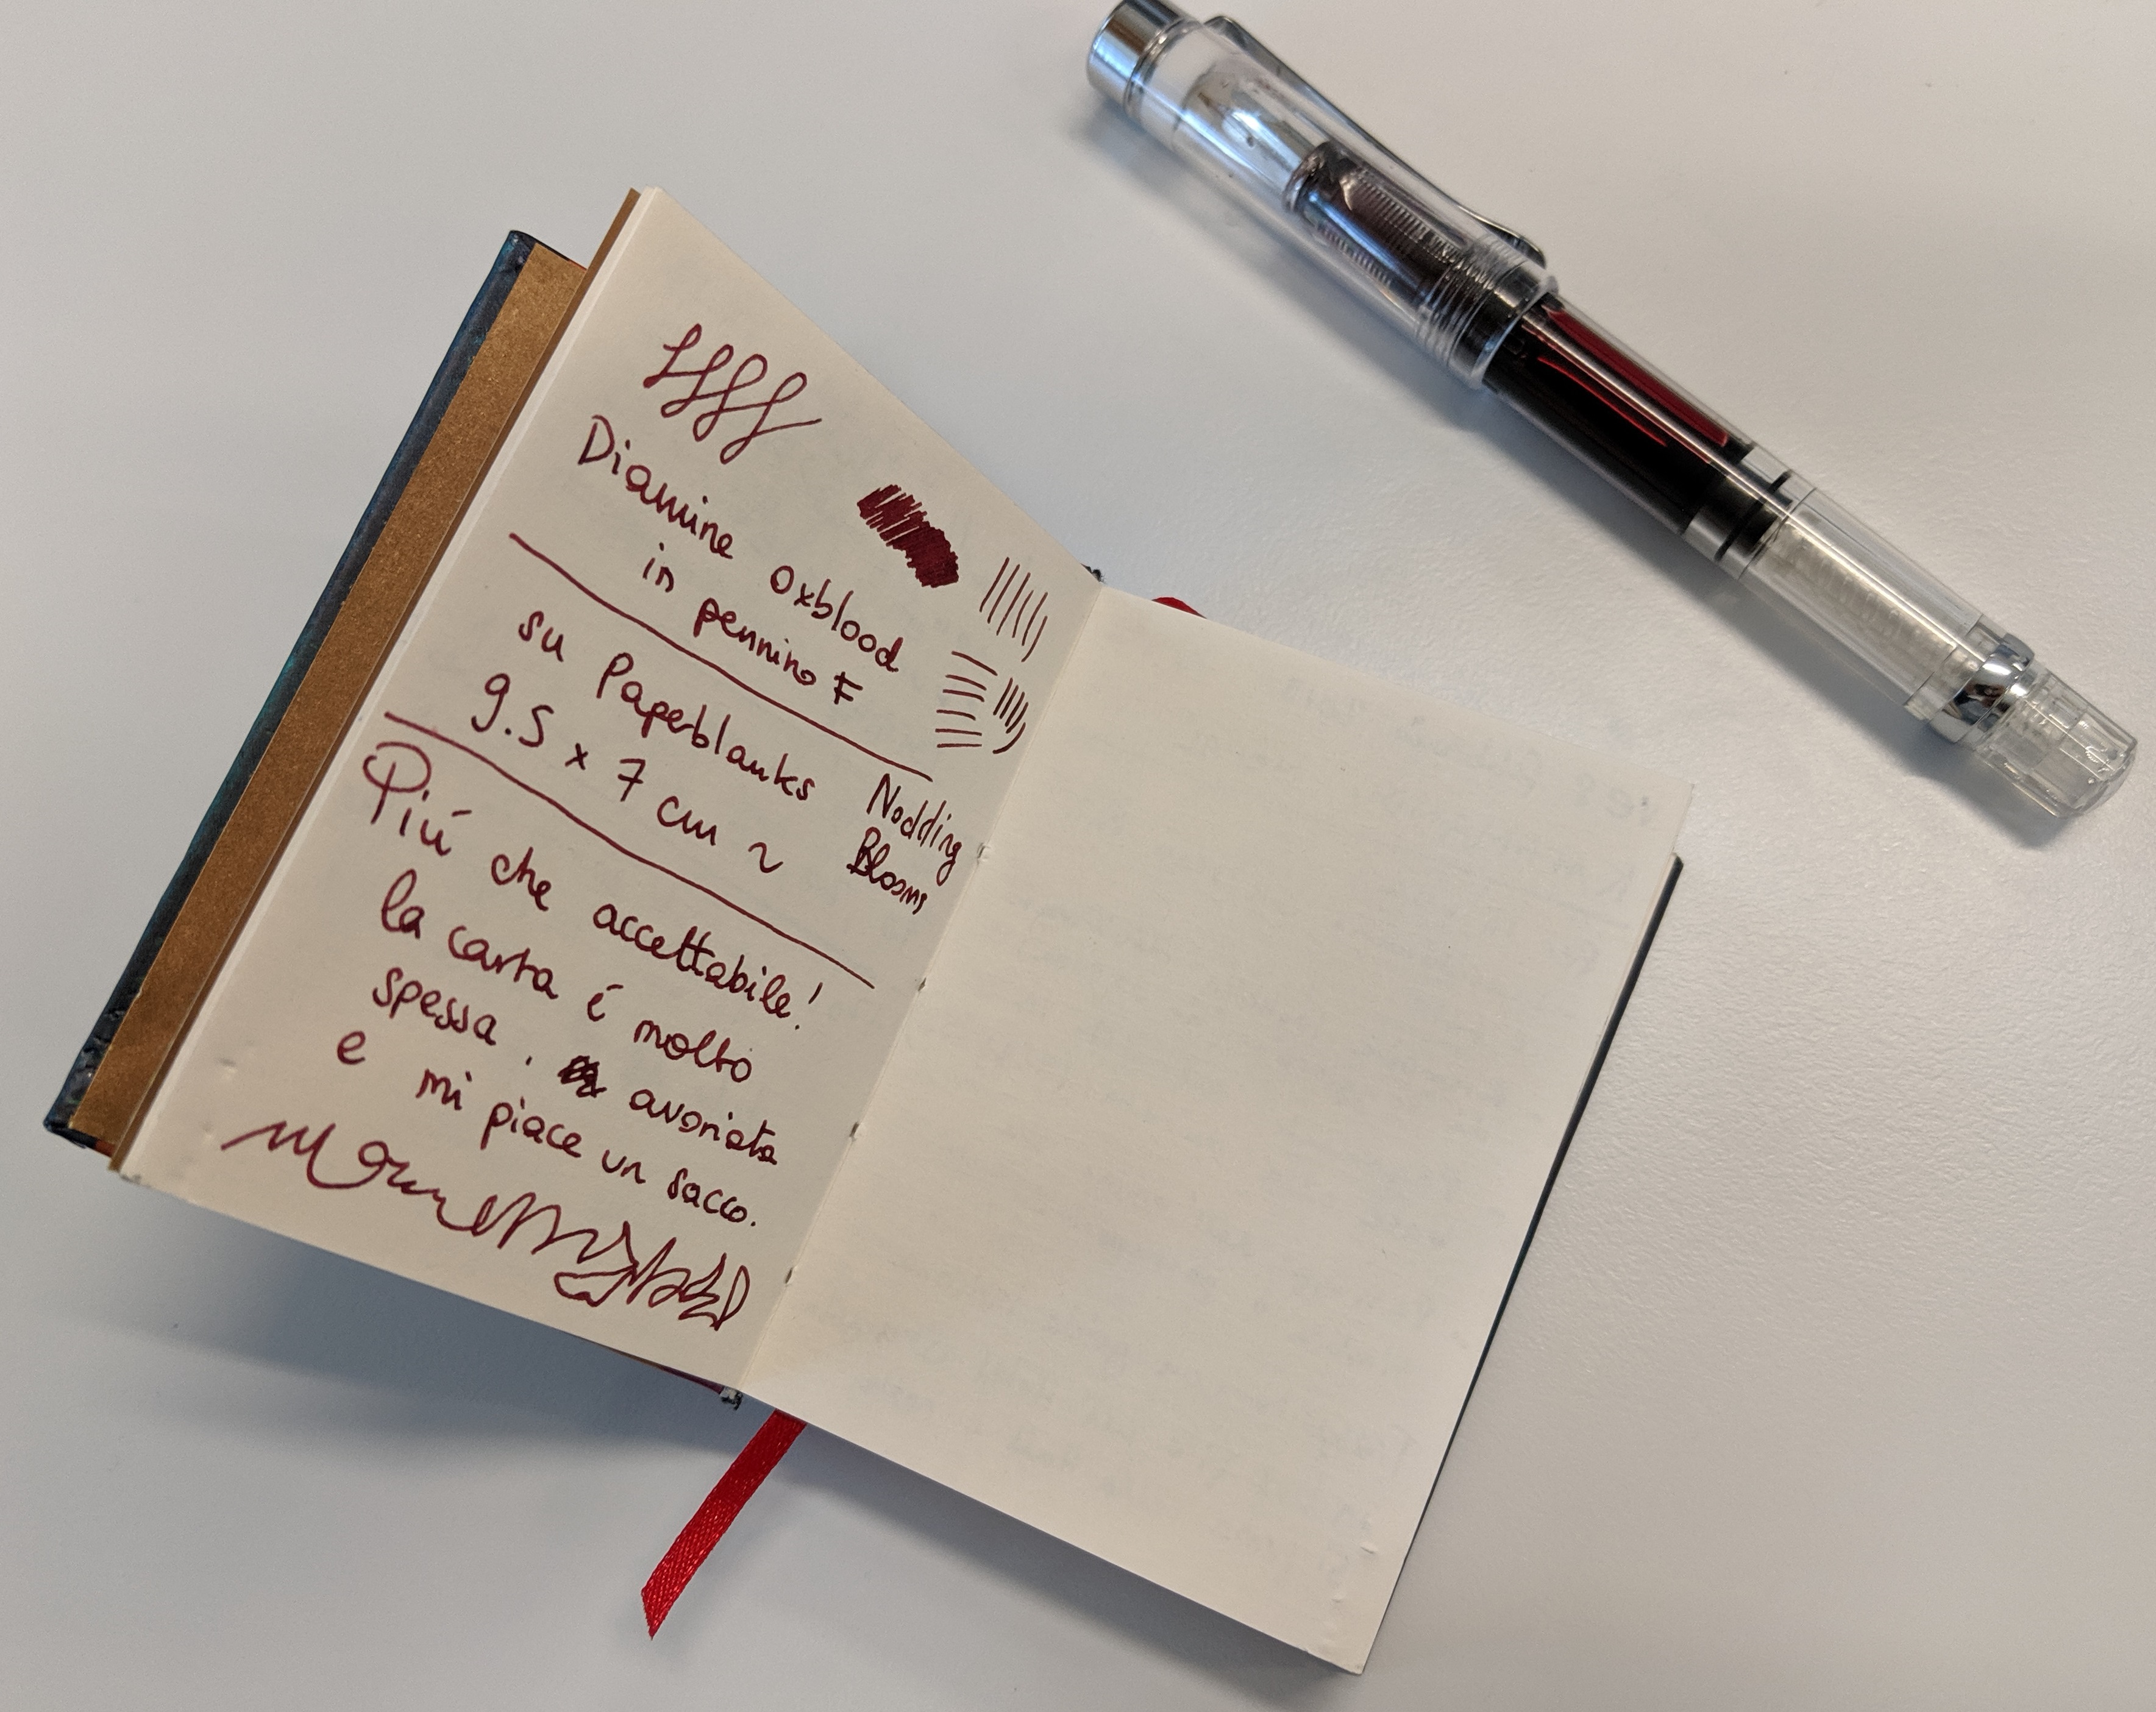 Diamine oxblood
in pennino F
su Paperblanks Nodding
9.5 x 7 cm ~ Blooms
Piú che accettabile!
la carta é molto
spessa, avoriata
e mi piace un sacco.